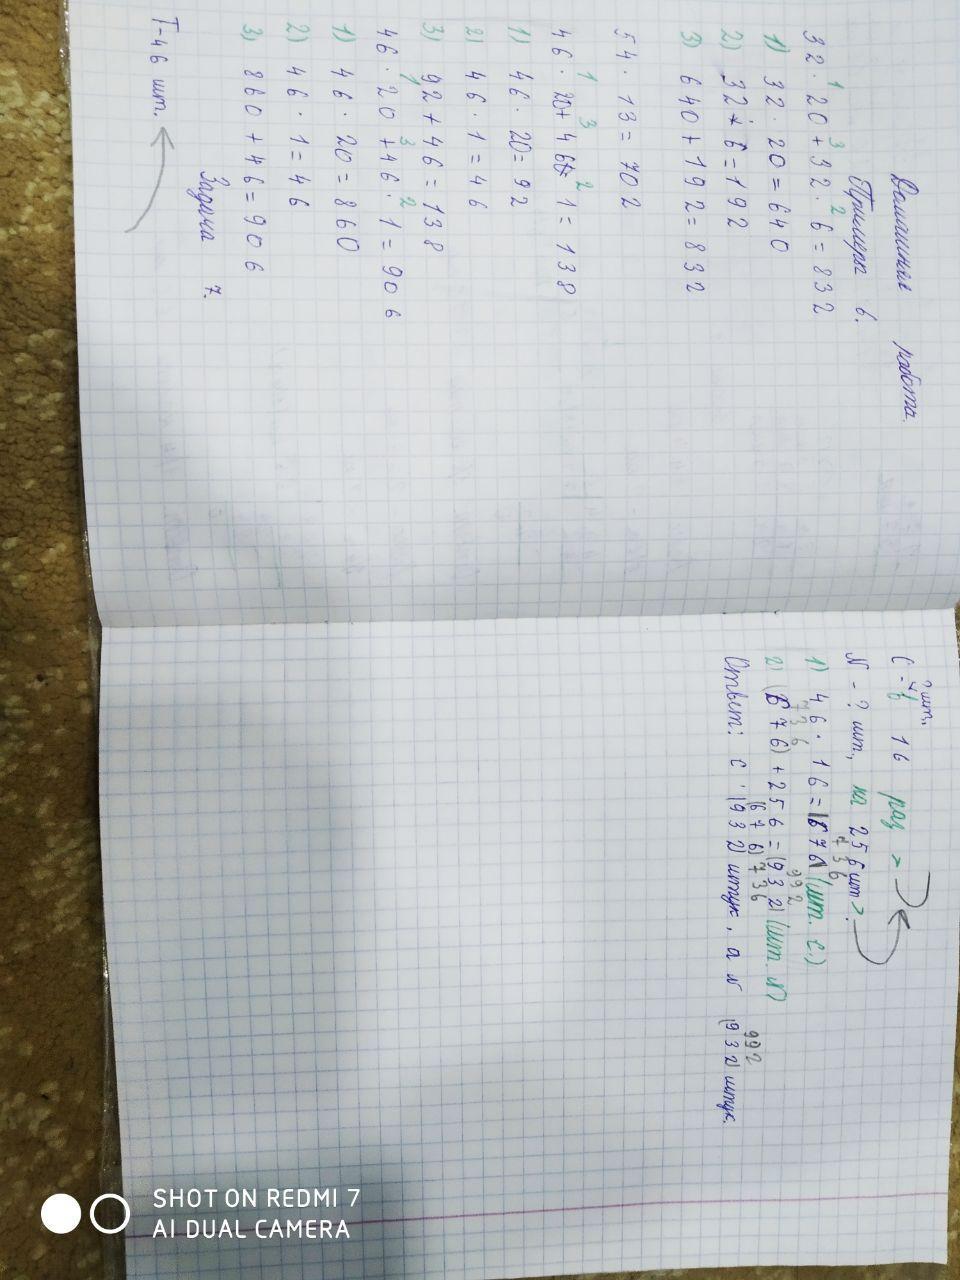 Домашняя работа.
Примеры 6.
1 3 2
32 · 20 + 32 · 6 = 832
1) 32 · 20 = 640
2) 32 · 6 = 192
3) 640 + 192 = 832
54 · 13 = 702
1 3 2
46 · 20 + 46 · 1 = 138
1) 46 · 20 = 92
2) 46 · 1 = 46
3) 92 + 46 = 138
1 3 2
46 · 20 + 46 · 1 = 906
1) 46 · 20 = 860
2) 46 · 1 = 46
3) 860 + 46 = 906
Задача 7.
Т - 46 шт.
? шт,
С - 16 раз >
N - ? шт, на 256 шт >.
736
1) 46 · 16 = (676) (шт. С.)
736 992
2) (676) + 256 = (932) (шт. N)
(676) 736 992
Ответ: С · (932) штук, а N (932) штук.
SHOT ON REDMI 7
AI DUAL CAMERA